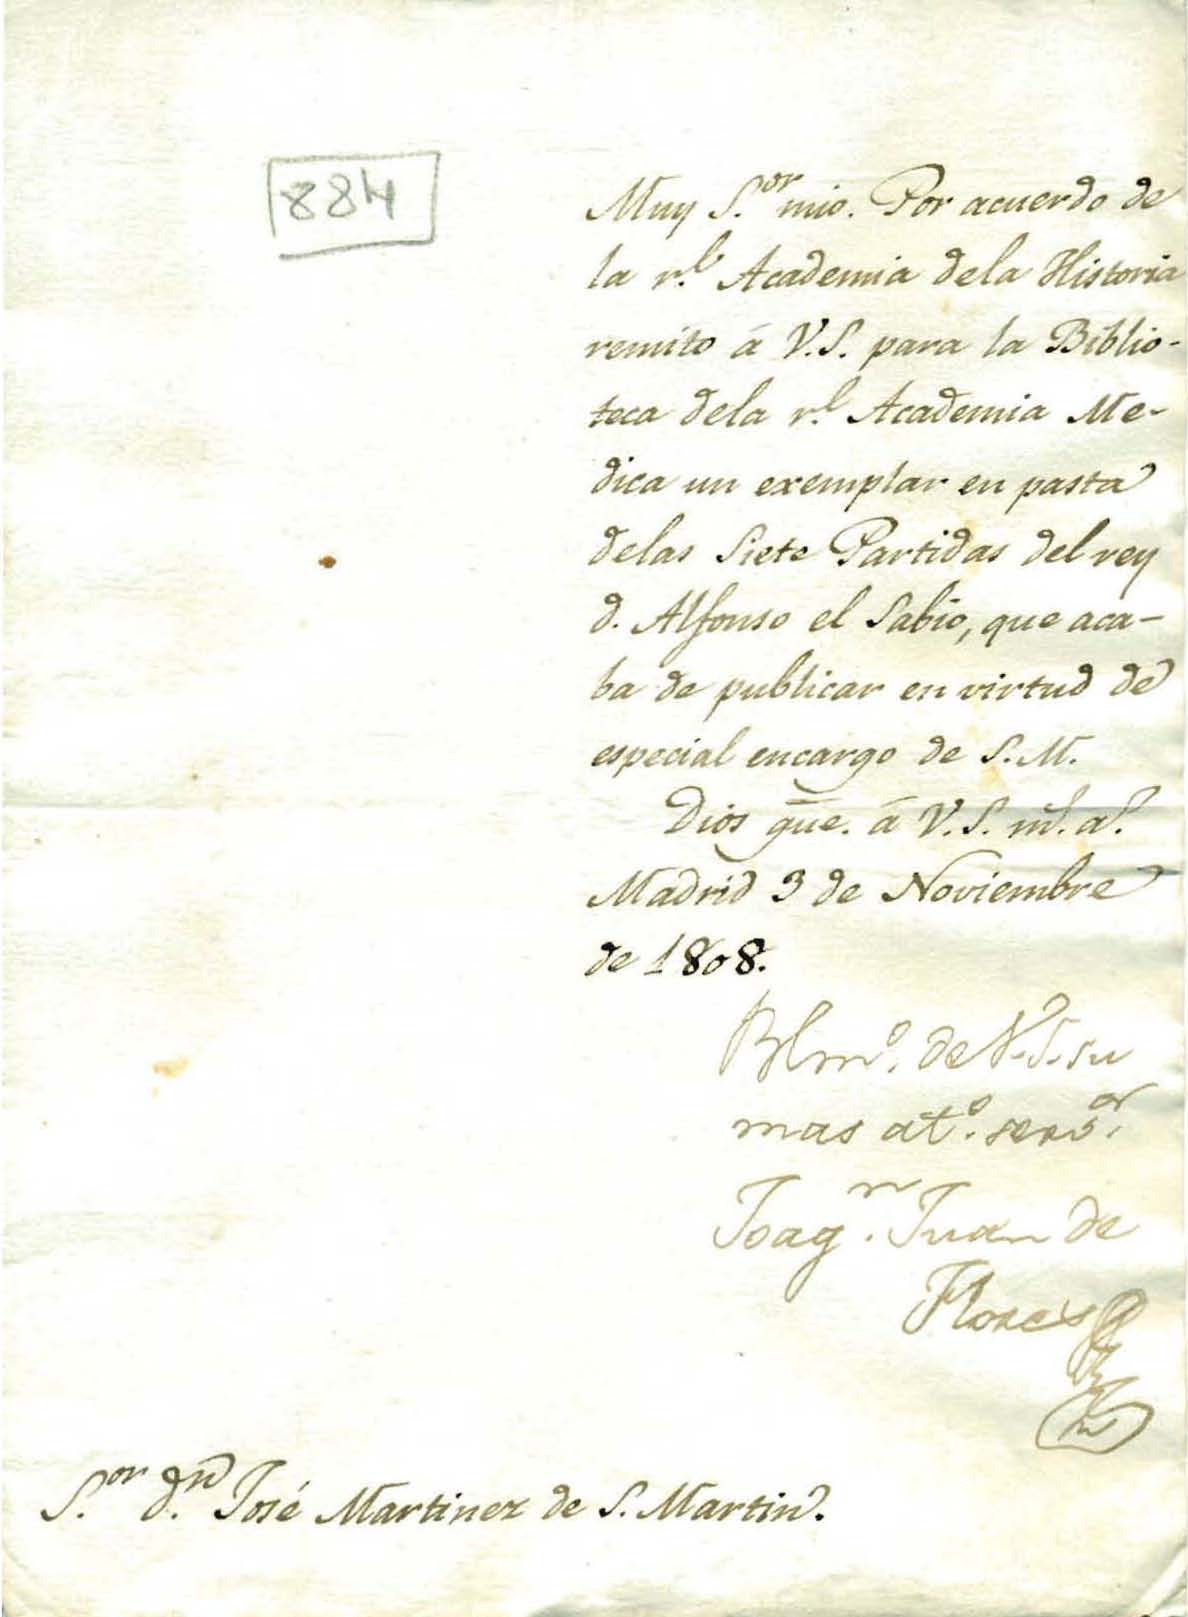 884
Muy S.or mio. Por acuerdo de
la r.l Academia dela Historia
remito á V.S. para la Biblio-
teca dela r.l Academia Me-
dica un exemplar en pasta
delas Siete Partidas del rey
d. Alfonso el Sabio, que aca-
ba de publicar en virtud de
especial encargo de S.M.
Dios gũe. á V.S. m.s a.s
Madrid 3 de Noviembre
de 1808.
Blm.o de V.S. su
mas at.o serv.or
Joaq.n Juan de
Flores
S.or d.n José Martinez de S. Martin.